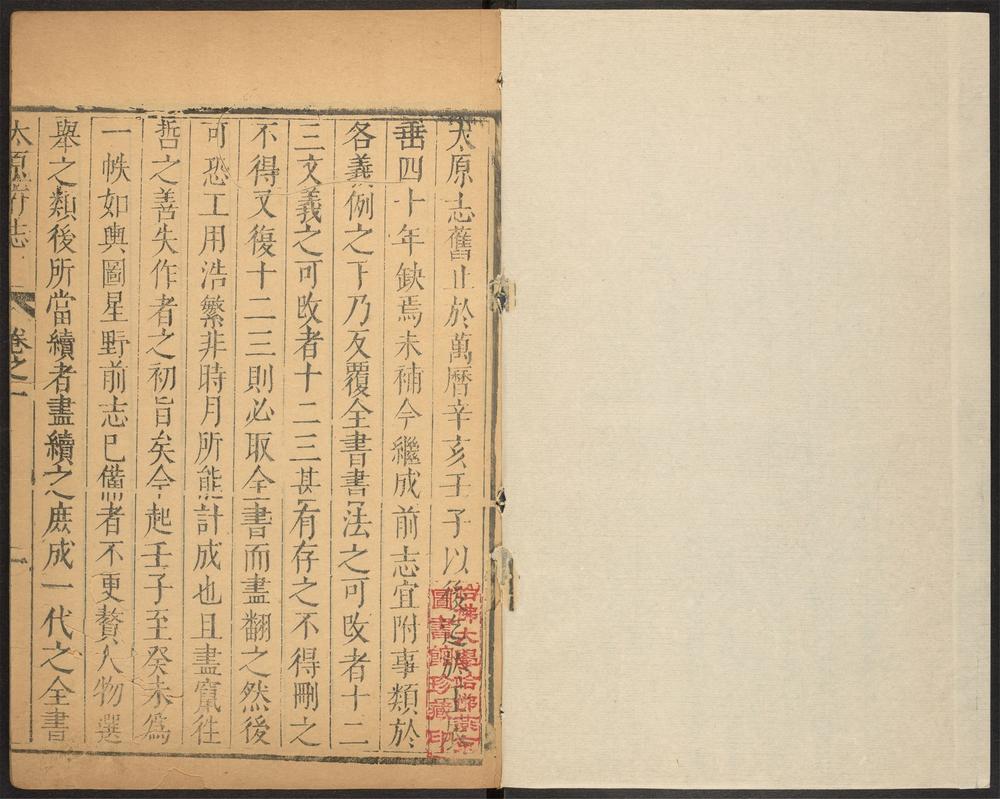 太原志舊止於萬曆辛亥壬子以後之於
垂四十年缺焉未補今繼成前志宜附事類於
各義例之下乃反覆全書書法之可攺者十二
三文義之可攺者十二三甚有存之不得刪之
不得又復十二三則必取全書而盡翻之然後
可恐工用浩繁非時月所能計成也且盡竄徃
哲之善失作者之初旨矣今起壬子至癸未爲
一帙如輿圖星野前志已備者不更贅人物選
舉之類後所當續者盡續之庶成一代之全書
太原府志
卷之一
一
哈佛大學哈佛燕京
圖書館珍藏印